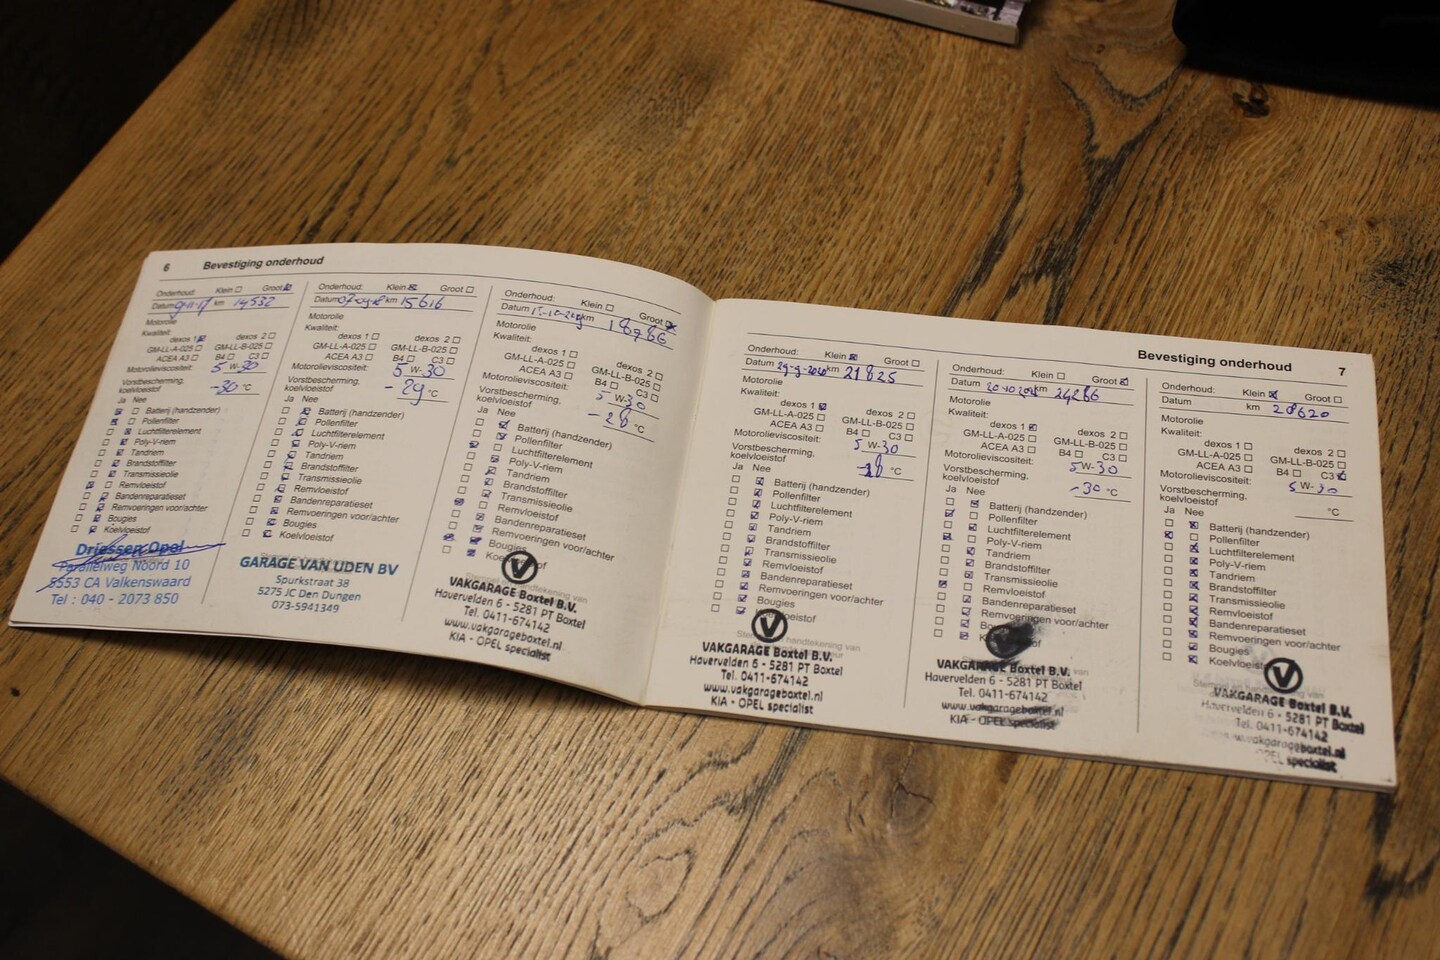 6 Bevestiging onderhoud
Onderhoud: Klein Groot
Datum km 14532
Motorolie
Kwaliteit:
dexos 1 dexos 2
GM-LL-A-025 GM-LL-B-025
ACEA A3 B4 C3
Motorolieviscositeit: 5 W-30
Vorstbescherming, koelvloeistof -30 °C
Ja Nee
Batterij (handzender)
Pollenfilter
Luchtfilterelement
Poly-V-riem
Tandriem
Brandstoffilter
Transmissieolie
Remvloeistof
Bandenreparatieset
Remvoeringen voor/achter
Bougies
Koelvloeistof
Driessen Opel
Parallelweg Noord 10
5553 CA Valkenswaard
Tel : 040 - 2073 850
Onderhoud: Klein Groot
Datum km 15616
Motorolie
Kwaliteit:
dexos 1 dexos 2
GM-LL-A-025 GM-LL-B-025
ACEA A3 B4 C3
Motorolieviscositeit: 5 W-30
Vorstbescherming, koelvloeistof -29 °C
Ja Nee
Batterij (handzender)
Pollenfilter
Luchtfilterelement
Poly-V-riem
Tandriem
Brandstoffilter
Transmissieolie
Remvloeistof
Bandenreparatieset
Remvoeringen voor/achter
Bougies
Koelvloeistof
GARAGE VAN UDEN BV
Spurkstraat 38
5275 JC Den Dungen
073-5941349
Onderhoud: Klein Groot
Datum km 18786
Motorolie
Kwaliteit:
dexos 1 dexos 2
GM-LL-A-025 GM-LL-B-025
ACEA A3 B4 C3
Motorolieviscositeit: 5 W-30
Vorstbescherming, koelvloeistof -28 °C
Ja Nee
Batterij (handzender)
Pollenfilter
Luchtfilterelement
Poly-V-riem
Tandriem
Brandstoffilter
Transmissieolie
Remvloeistof
Bandenreparatieset
Remvoeringen voor/achter
Bougies
V
VAKGARAGE Boxtel B.V.
Havervelden 6 - 5281 PT Boxtel
Tel. 0411-674142
www.vakgarageboxtel.nl
KIA - OPEL specialist
Bevestiging onderhoud 7
Onderhoud: Klein Groot
Datum 29-9-2020 km 21825
Motorolie
Kwaliteit:
dexos 1 dexos 2
GM-LL-A-025 GM-LL-B-025
ACEA A3 B4 C3
Motorolieviscositeit: 5 W-30
Vorstbescherming, koelvloeistof °C
Ja Nee
Batterij (handzender)
Pollenfilter
Luchtfilterelement
Poly-V-riem
Tandriem
Brandstoffilter
Transmissieolie
Remvloeistof
Bandenreparatieset
Remvoeringen voor/achter
Bougies
Koelvloeistof
V
VAKGARAGE Boxtel B.V.
Havervelden 6 - 5281 PT Boxtel
Tel. 0411-674142
www.vakgarageboxtel.nl
KIA - OPEL specialist
Onderhoud: Klein Groot
Datum km 24266
Motorolie
Kwaliteit:
dexos 1 dexos 2
GM-LL-A-025 GM-LL-B-025
ACEA A3 B4 C3
Motorolieviscositeit: 5 W-30
Vorstbescherming, koelvloeistof -30 °C
Ja Nee
Batterij (handzender)
Pollenfilter
Luchtfilterelement
Poly-V-riem
Tandriem
Brandstoffilter
Transmissieolie
Remvloeistof
Bandenreparatieset
Remvoeringen voor/achter
VAKGARAGE Boxtel B.V.
Havervelden 6 - 5281 PT Boxtel
Tel. 0411-674142
www.vakgarageboxtel.nl
KIA - OPEL specialist
Onderhoud: Klein Groot
km 28620
Motorolie
Kwaliteit:
dexos 1 dexos 2
GM-LL-A-025 GM-LL-B-025
ACEA A3 B4 C3
Motorolieviscositeit: 5 W-30
Vorstbescherming, koelvloeistof °C
Ja Nee
Batterij (handzender)
Pollenfilter
Luchtfilterelement
Poly-V-riem
Tandriem
Brandstoffilter
Transmissieolie
Remvloeistof
Bandenreparatieset
Remvoeringen voor/achter
Bougies
Koelvloeistof
V
VAKGARAGE Boxtel B.V.
Havervelden 6 - 5281 PT Boxtel
Tel. 0411-674142
www.vakgarageboxtel.nl
OPEL specialist